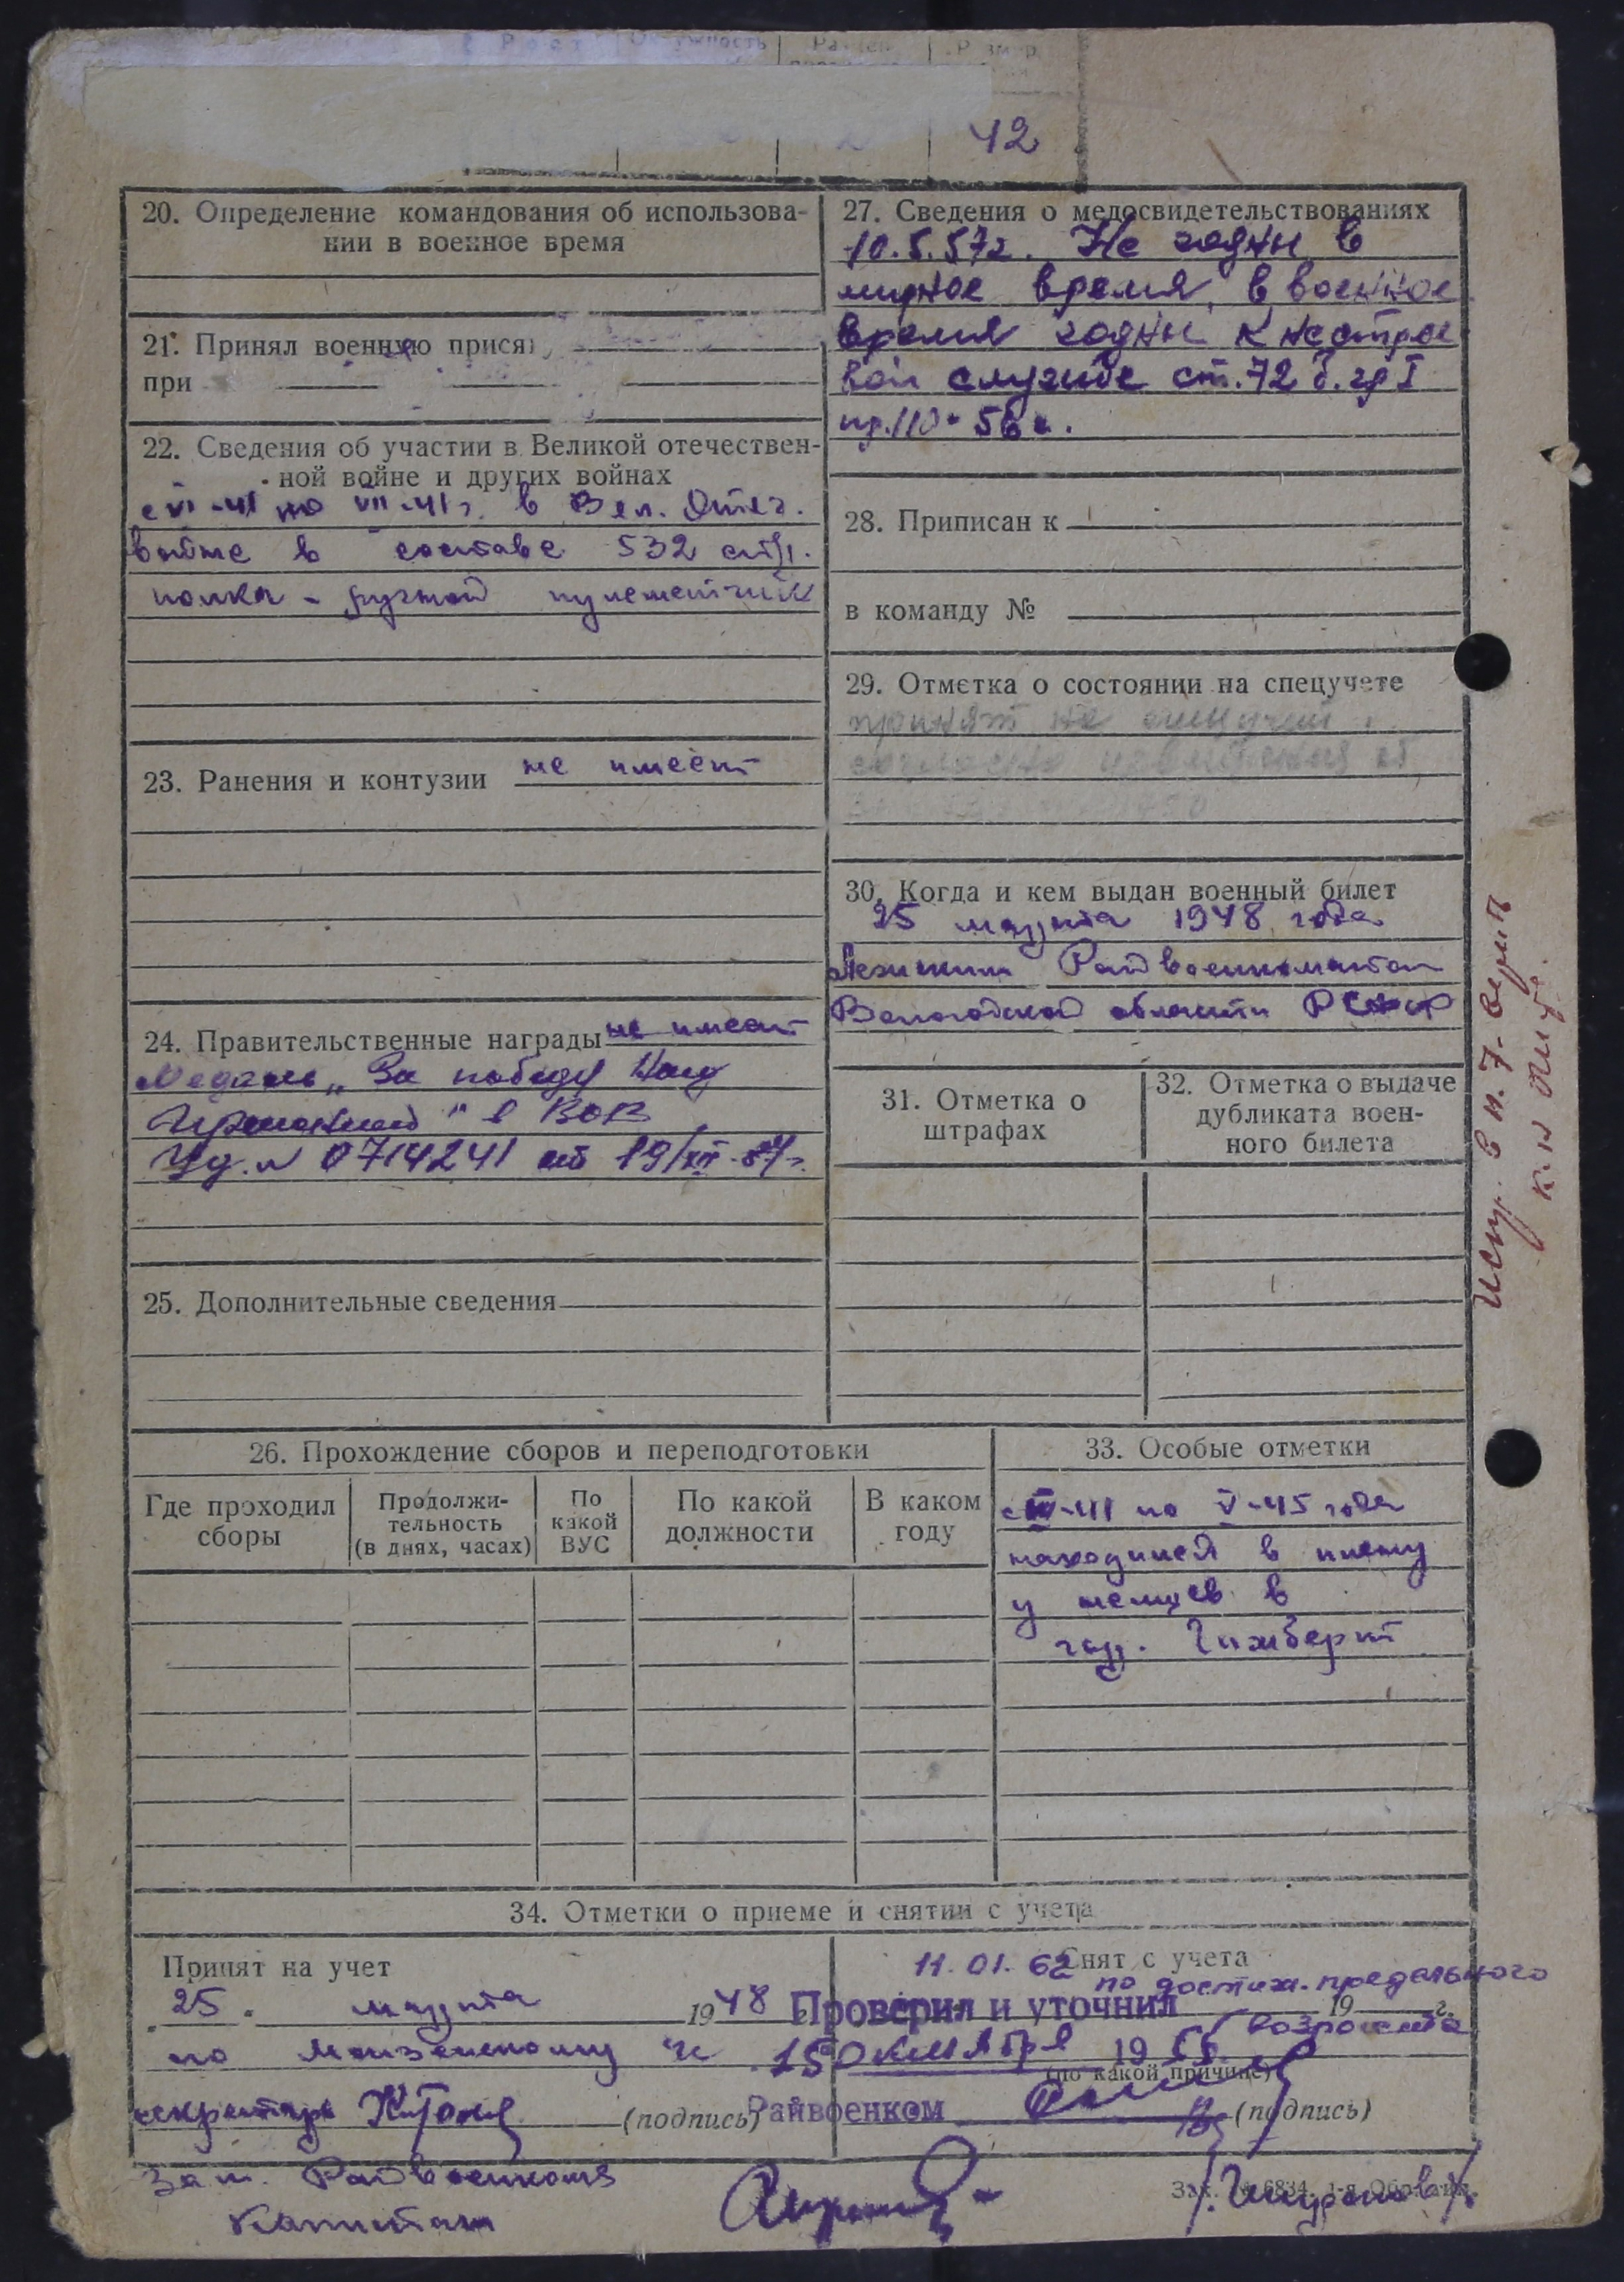 Рост Окружность Размер Размер
42
20. Определение командования об использова-
нии в военное время
21. Принял военную прися
при
22. Сведения об участии в Великой отечествен-
ной войне и других войнах
с VI-41 по VII-41 г. в Вел. Отеч.
войне в составе 532 стр.
полка - ручной пулеметчик
23. Ранения и контузии не имеет
24. Правительственные награды не имеет
Медаль „За победу над
Германией" в ВОВ
Уд. № 0714241 от 19/XII-
25. Дополнительные сведения
27. Сведения о медосвидетельствованиях
10.5.57г. Не годен в
мирное время, в военное
время годен к нестрое
вой службе ст. 72 б. гр I
пр. 110-56 г.
28. Приписан к
в команду №
29. Отметка о состоянии на спецучете
принят на спецучет
согласно
30. Когда и кем выдан военный билет
25 марта 1948 года
Райвоенкоматом
Вологодской области РСФСР
31. Отметка о
штрафах
32. Отметка о выдаче
дубликата воен-
ного билета
Испр. в п. 7-
26. Прохождение сборов и переподготовки
Где проходил
сборы
Продолжи-
тельность
(в днях, часах)
По
какой
ВУС
По какой
должности
В каком
году
33. Особые отметки
с -41 по V-45 года
находился в плену
у немцев в
гор.
34. Отметки о приеме и снятии с учета
Принят на учет
„25" марта 1948
по
секретарь (подпись)
11.01.62 Снят с учета
по достиж. предельного
19 г.
возраста
(по какой причине)
(подпись)
Проверил и уточнил
15 октября 1955.
Райвоенком
Зам. Райвоенкома
Капитан
Зак. 6834